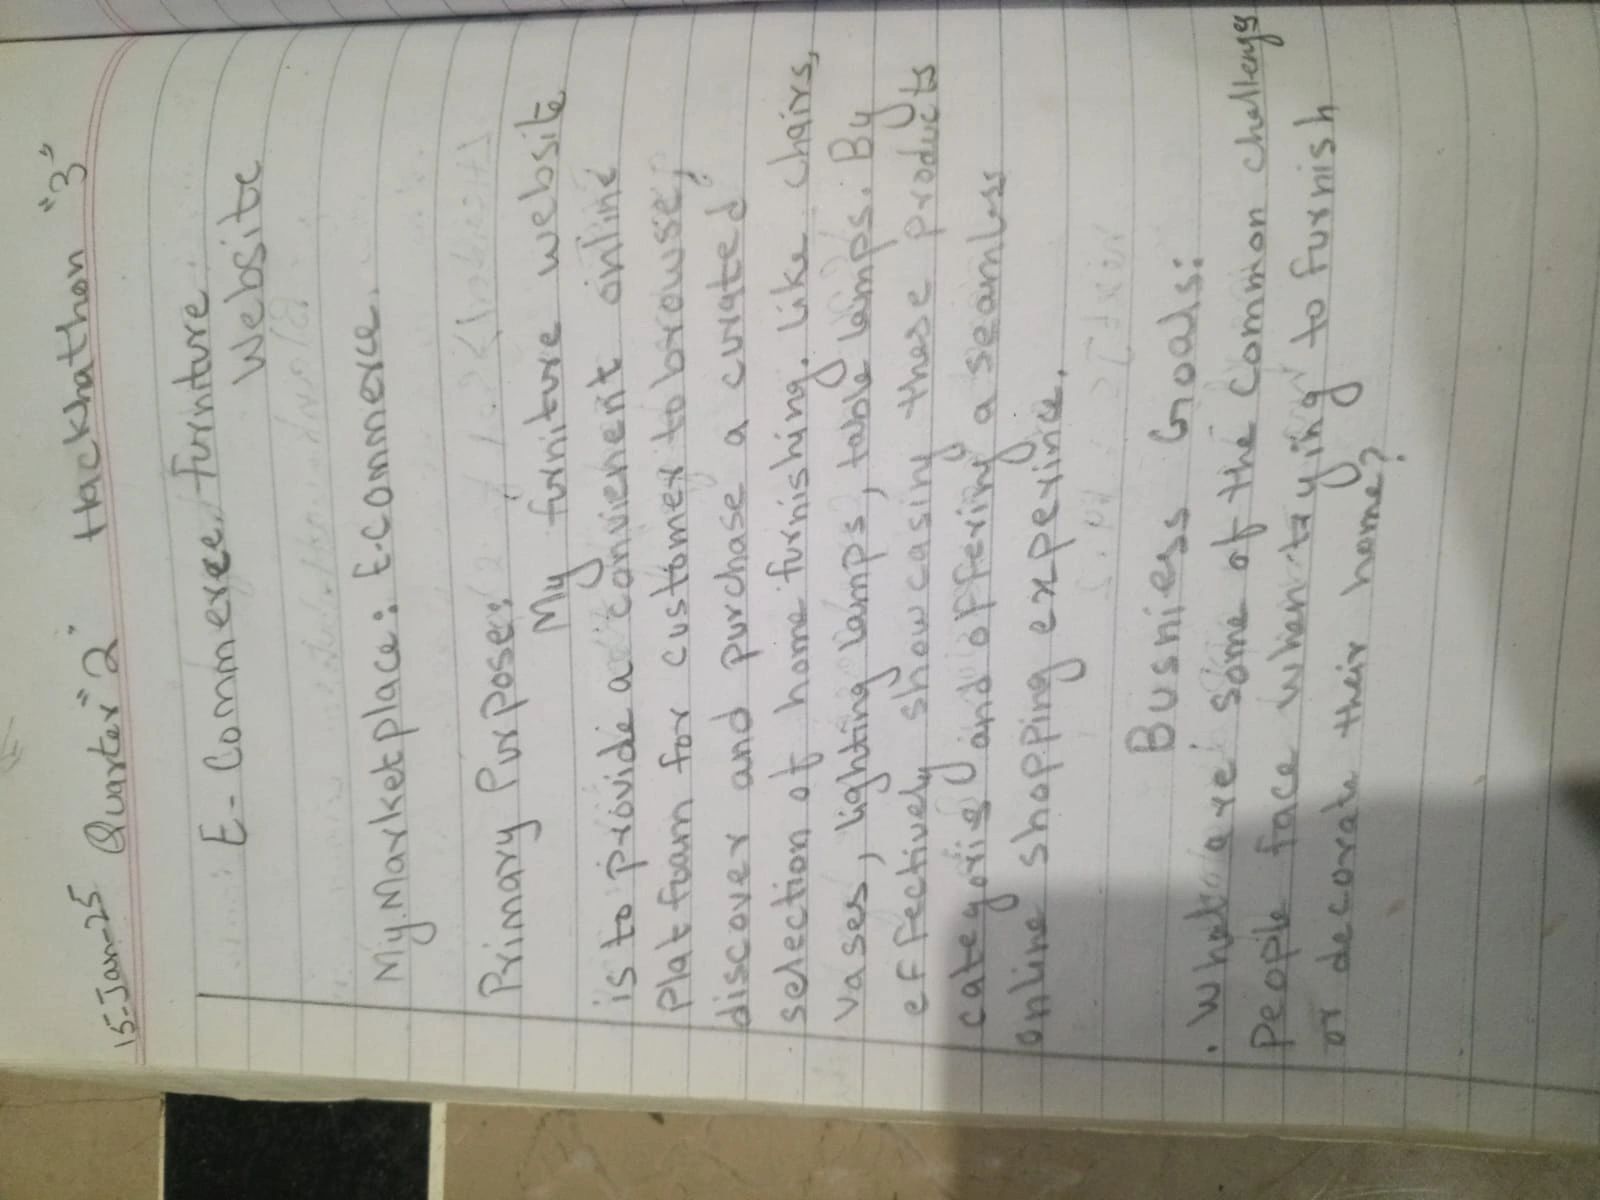 15-Jan-25 Quarter "2" Hackhathon "3"
E-Commerce Furniture
Website
My Marketplace: E-commerce.
Primary Purpose:
My furniture website
is to provide a convienent online
Platfoam for customer to browse,
discover and purchase a curated
selection of home furnishing. like chairs,
Vases, lighting lamps, table lamps. By
effectively showcasing these products
categoris and offering a seamless
online shopping experince.
Busniess Goals:
. What are some of the common challenges
People face when trying to furnish
or decorate their home?